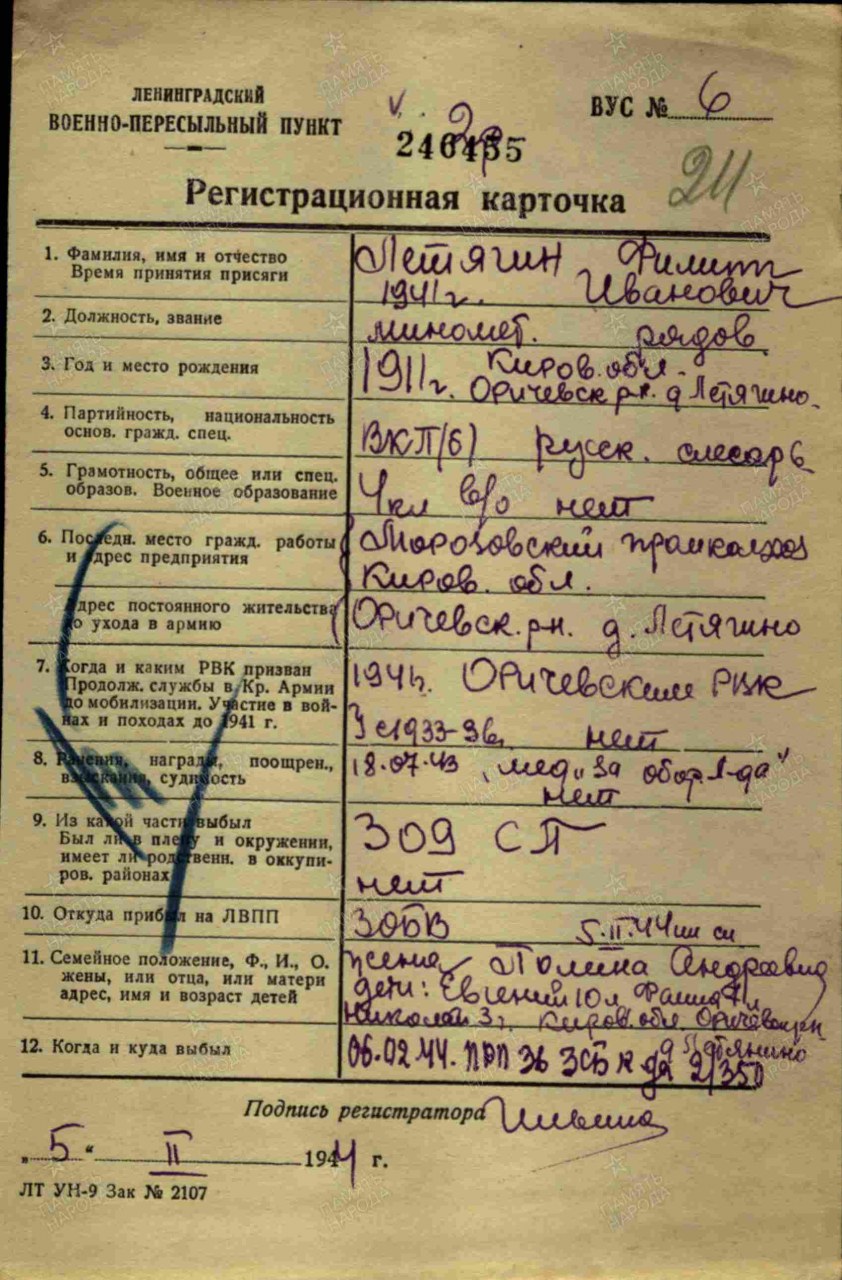 ЛЕНИНГРАДСКИЙ
ВОЕННО-ПЕРЕСЫЛЬНЫЙ ПУНКТ
ВУС № 6
v. 2р
246455
Регистрационная карточка
1. Фамилия, имя и отчество
Время принятия присяги
Летягин Филипп
1941 г. Иванович
2. Должность, звание
миномет. рядов.
3. Год и место рождения
1911 г. Киров. обл.
Оричевск р-н. д Летягино.
4. Партийность, национальность
основ. гражд. спец.
ВКП(б) русск. слесарь
5. Грамотность, общее или спец.
образов. Военное образование
4 кл в/о нет
6. Последн. место гражд. работы
и адрес предприятия
Морозовский промколхоз
Киров. обл.
Адрес постоянного жительства
до ухода в армию
Оричевск. р-н. д. Летягино
7. Когда и каким РВК призван
Продолж. службы в Кр. Армии
до мобилизации. Участие в вой-
нах и походах до 1941 г.
1941г. Оричевским РВК
с 1933-36г. нет
8. Ранения, награды, поощрен.,
взыскания, судимость
18.07.43 мед „За обор. Л-да"
нет
9. Из какой части выбыл
Был ли в плену и окружении,
имеет ли родственн. в оккупи-
ров. районах
309 СП
нет
10. Откуда прибыл на ЛВПП
5.II.44
11. Семейное положение, Ф., И., О.
жены, или отца, или матери
адрес, имя и возраст детей
жена Полина Андреевна
дети: Евгений 10 л
Николай 3 г. Киров. обл. Оричевск
12. Когда и куда выбыл
06.02.44. 36 ЗСБ
Подпись регистратора Ильина
„5" II 1944 г.
ЛТ УН-9 Зак № 2107
ПАМЯТЬ НАРОДА